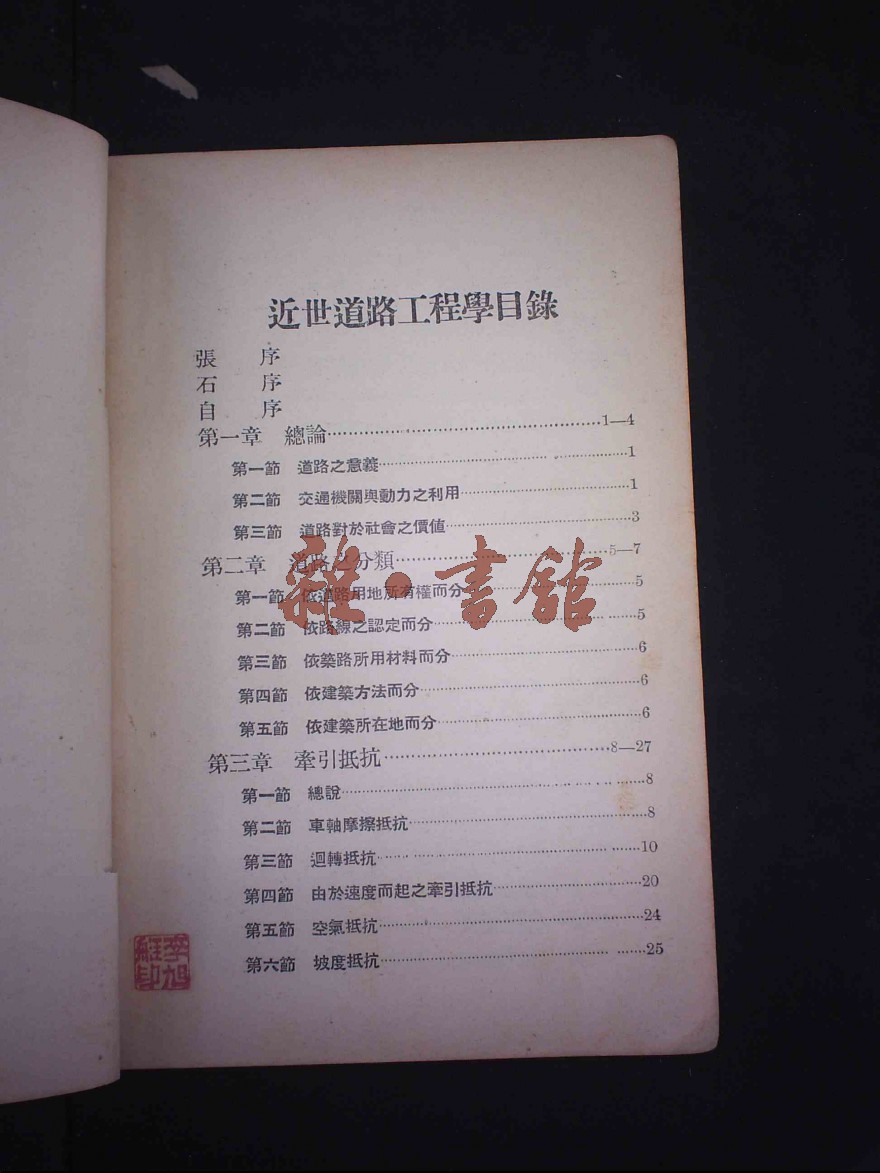 近世道路工程學目錄
張 序
石 序
自 序
第一章 總論……1—4
第一節 道路之意義……1
第二節 交通機關與動力之利用……1
第三節 道路對於社會之價值……3
第二章 道路之分類……5—7
第一節 依道路用地所有權而分……5
第二節 依路線之認定而分……5
第三節 依築路所用材料而分……6
第四節 依建築方法而分……6
第五節 依建築所在地而分……6
第三章 牽引抵抗……8—27
第一節 總說……8
第二節 車軸摩擦抵抗……8
第三節 迴轉抵抗……10
第四節 由於速度而起之牽引抵抗……20
第五節 空氣抵抗……24
第六節 坡度抵抗……25
雜·書館